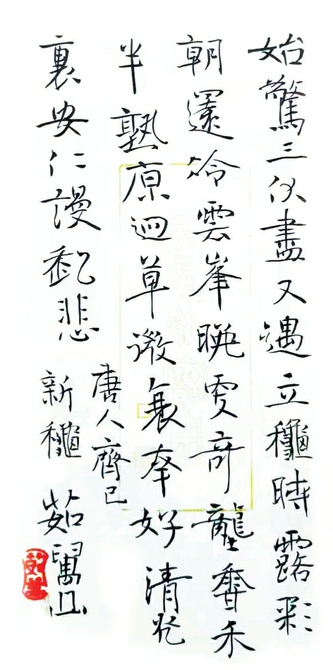 始驚三伏盡又遇立龝時露彩
朝還冷雲峯晚更奇壟香禾
半熟原迥草微衰幸好清光
裏安仁謾起悲
唐人齊己
新龝 茹